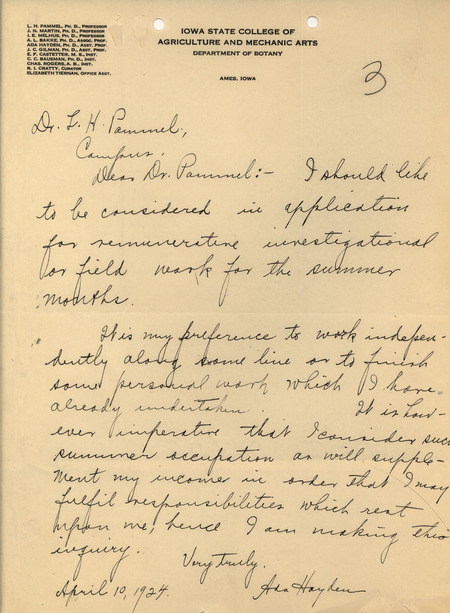 L. H. PAMMEL, PH. D., PROFESSOR
J. N. MARTIN, PH. D., PROFESSOR
I. E. MELHUS, PH. D., PROFESSOR
A. L. BAKKE, PH. D., ASSOC. PROF.
ADA HAYDEN, PH. D., ASST. PROF.
J. C. GILMAN, PH. D., ASST. PROF.
E. F. CASTETTER, M. S., INST.
C. C. BAUSMAN, PH. D., INST.
CHAS. ROGERS, A. B., INST.
R. I. CRATTY, CURATOR
ELIZABETH TIERNAN, OFFICE ASST.
IOWA STATE COLLEGE OF
AGRICULTURE AND MECHANIC ARTS
DEPARTMENT OF BOTANY
AMES, IOWA
3
Dr. L. H. Pammel,
Campus.
Dear Dr. Pammel:- I should like
to be considered in application
for remunerative investigational
or field work for the summer
months.
It is my preference to work indepen-
dently along some line or to finish
some personal work which I have
already undertaken. It is how-
ever imperative that I consider such
summer occupation as will supple-
ment my income in order that I may
fulfil responsibilities which rest
upon me; hence I am making this
inquiry.
Very truly.
April 10, 1924. Ada Hayden